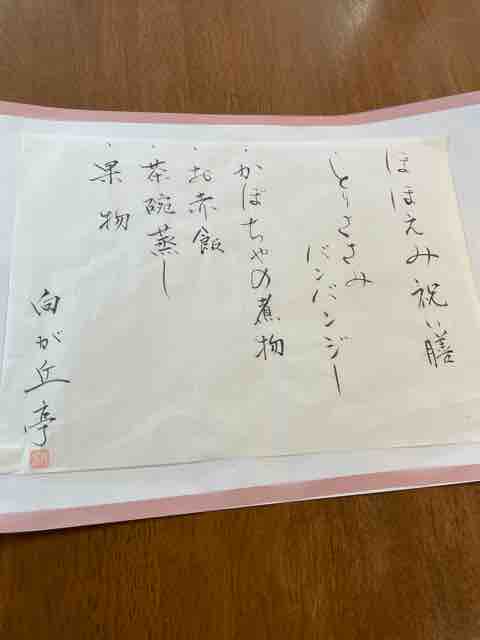 ほほえみ祝い膳
・とりささみ
バンバンジー
・かぼちゃの煮物
・お赤飯
・茶碗蒸し
・果物
向が丘亭